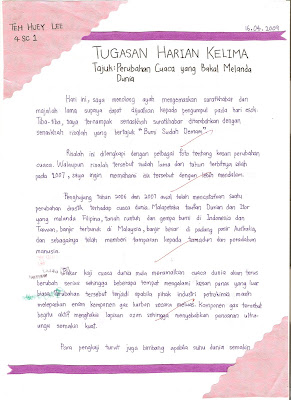 TEH HUEY LEE
4 SC 1
16.04.2009
TUGASAN HARIAN KELIMA
Tajuk: Perubahan Cuaca yang Bakal Melanda
Dunia
Hari ini, saya menolong ayah mengemaskan suratkhabar dan
majalah lama supaya dapat dijualkan kepada pengumpul pada hari esok.
Tiba-tiba, saya ternampak senaskhah suratkhabar ditambahkan dengan
senaskhah risalah yang bertajuk "Bumi Sudah Demam".
Risalah ini dilengkapi dengan pelbagai foto tentang kesan perubahan
cuaca. Walaupun risalah tersebut sudah lama dari tahun terbitnya ialah
pada 2007, saya ingin memahami isi tersebut dengan lebih mendalam.
Penghujung tahun 2006 dan 2007 awal telah mencatatkan suatu
perubahan drastik terhadap cuaca dunia. Malapetaka taufan Durian dan Utor
yang melanda Filipina, tanah runtuh dan gempa bumi di Indonesia dan
Taiwan, banjir terburuk di Malaysia, banjir besar di padang pasir Australia,
dan sebagainya telah memberi tamparan kepada tamadun dan peradaban
manusia.
Pakar kaji cuaca dunia mula meramalkan cuaca dunia akan terus
berubah serius sehingga beberapa tempat mengalami kesan panas yang luar
biasa. Perubahan tersebut terjadi apabila pihak industri petrokimia masih
melepaskan enam komponen gas karbon secara meluas. Komponen gas tersebut
begitu aktif menghakis lapisan ozon sehingga menyebabkan pancaran ultra-
ungu semakin kuat.
Para pengkaji turut juga bimbang apabila suhu dunia semakin